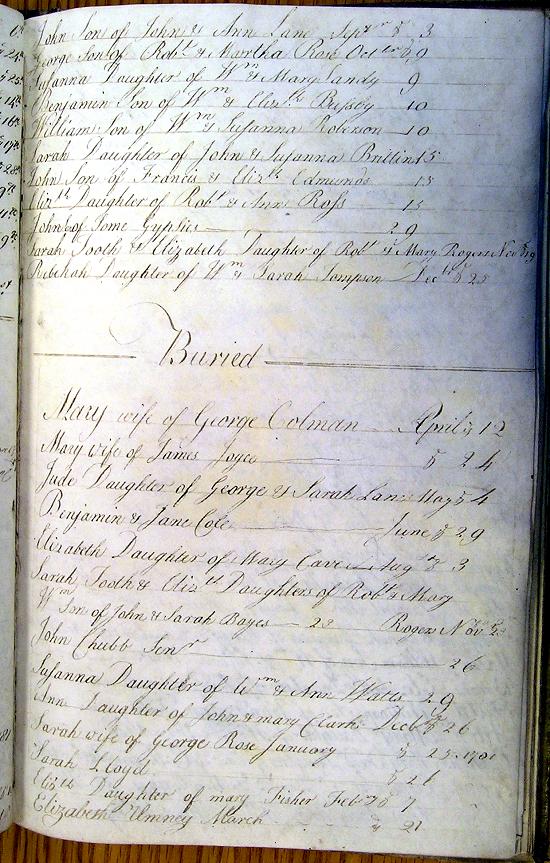 John Son of John & Ann Lane Sepr ye 3
George Son of Robt & Martha Rose Octr ye 9
Susanna Daughter of Wm & Mary Landy 9
Benjamin Son of Wm & Elizth Bussby 10
William Son of Wm & Susanna Roberson 10
Sarah Daughter of John & Susanna Brittin 15
John Son of Francis & Elizth Edmunds 15
Elizth Daughter of Robt & Ann Ross 15
John of Some Gypsies 29
Sarah Tooth & Elizabeth Daughter of Robt & Mary Rogers Nov ye 19
Rebekah Daughter of Wm & Sarah Sompson Decbr ye 25
Buried
Mary wife of George Colman April ye 12
Mary wife of James Joyce ye 24
Jude Daughter of George & Sarah Lane May ye 4
Benjamin & Jane Cole June ye 29
Elizabeth Daughter of Mary Cave Augt ye 3
Sarah Tooth & Elizth Daughters of Robt & Mary
Wm Son of John & Sarah Bayes 22 Rogers Nov ye
John Chubb Senr 26
Susanna Daughter of Wm & Ann Watts 29
Ann Daughter of John & mary Clark Decbr ye 26
Sarah wife of George Rose January ye 25
Sarah Lloyd ye 26
Elizth Daughter of mary Fisher Febry ye 7
Elizabeth Umney March ye 21